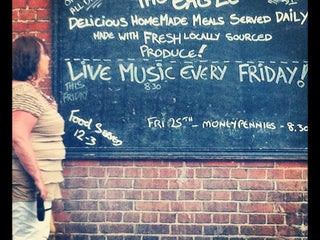 ALL OF
THE EAGLE
DELICIOUS HOMEMADE MEALS SERVED DAILY
MADE WITH FRESH LOCALLY SOURCED
PRODUCE!
LIVE MUSIC EVERY FRIDAY!
THIS 8.30
FRIDAY
FRI 25TH - MONEYPENNIES - 8.30
Food Served
12-3